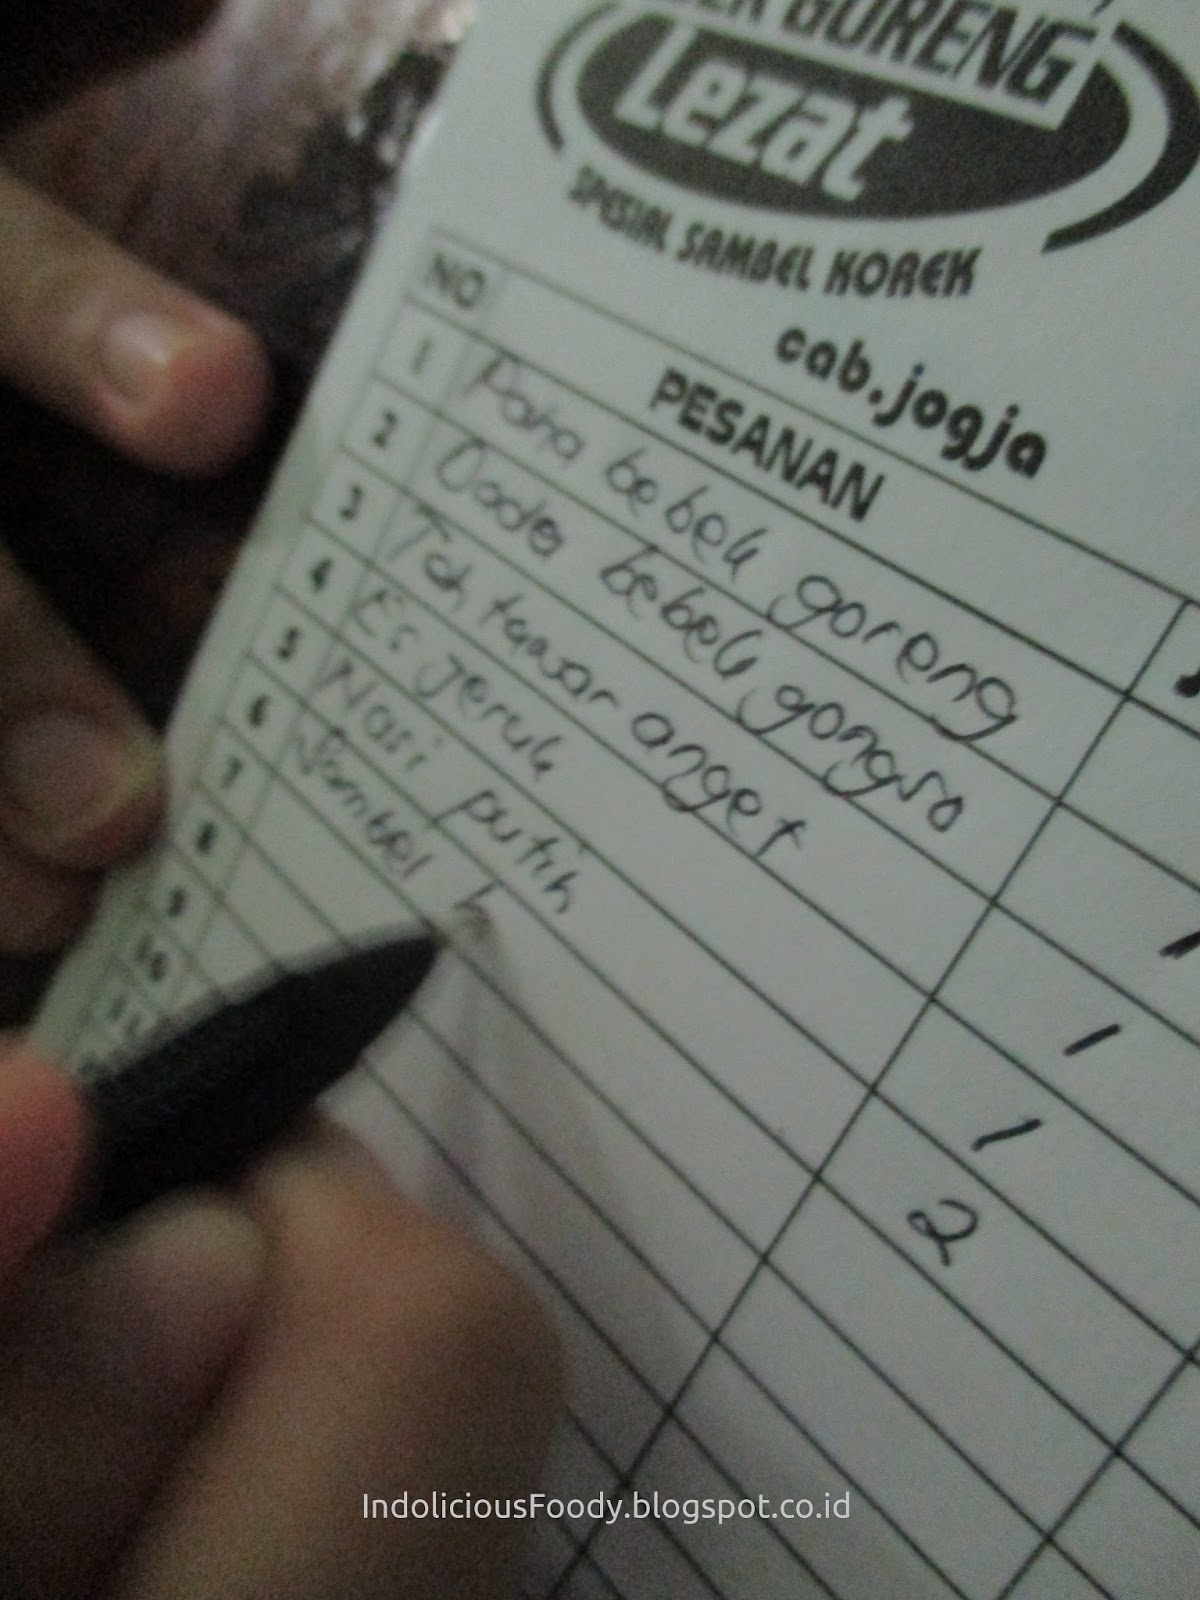 GORENG
Lezat
SPESIAL SAMBEL KOREK
cab.jogja
NO PESANAN
1 Paha bebek goreng
2 Dada bebek gongso 1
3 Teh tawar anget 1
4 Es jeruk 1
5 Nasi putih 2
6 Sambel
7
8
9
10
11
IndoliciousFoody.blogspot.co.id